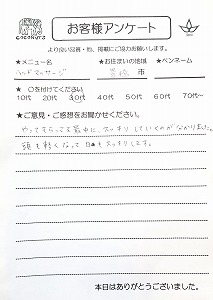 COCONUTS
お客様アンケート
より良い品質・他、掲載にご協力お願いします。
★メニュー名 ★お住まいの地域 ★ペンネーム
ヘッドマッサージ 市
★ ○を付けてください
10代 20代 30代 40代 50代 60代 70代～
★ご意見・ご感想をお聞かせください。
やってもらってる最中に、スッキリしていくのが分かりました。
頭も軽くなって目もスッキリします。
本日はありがとうございました。